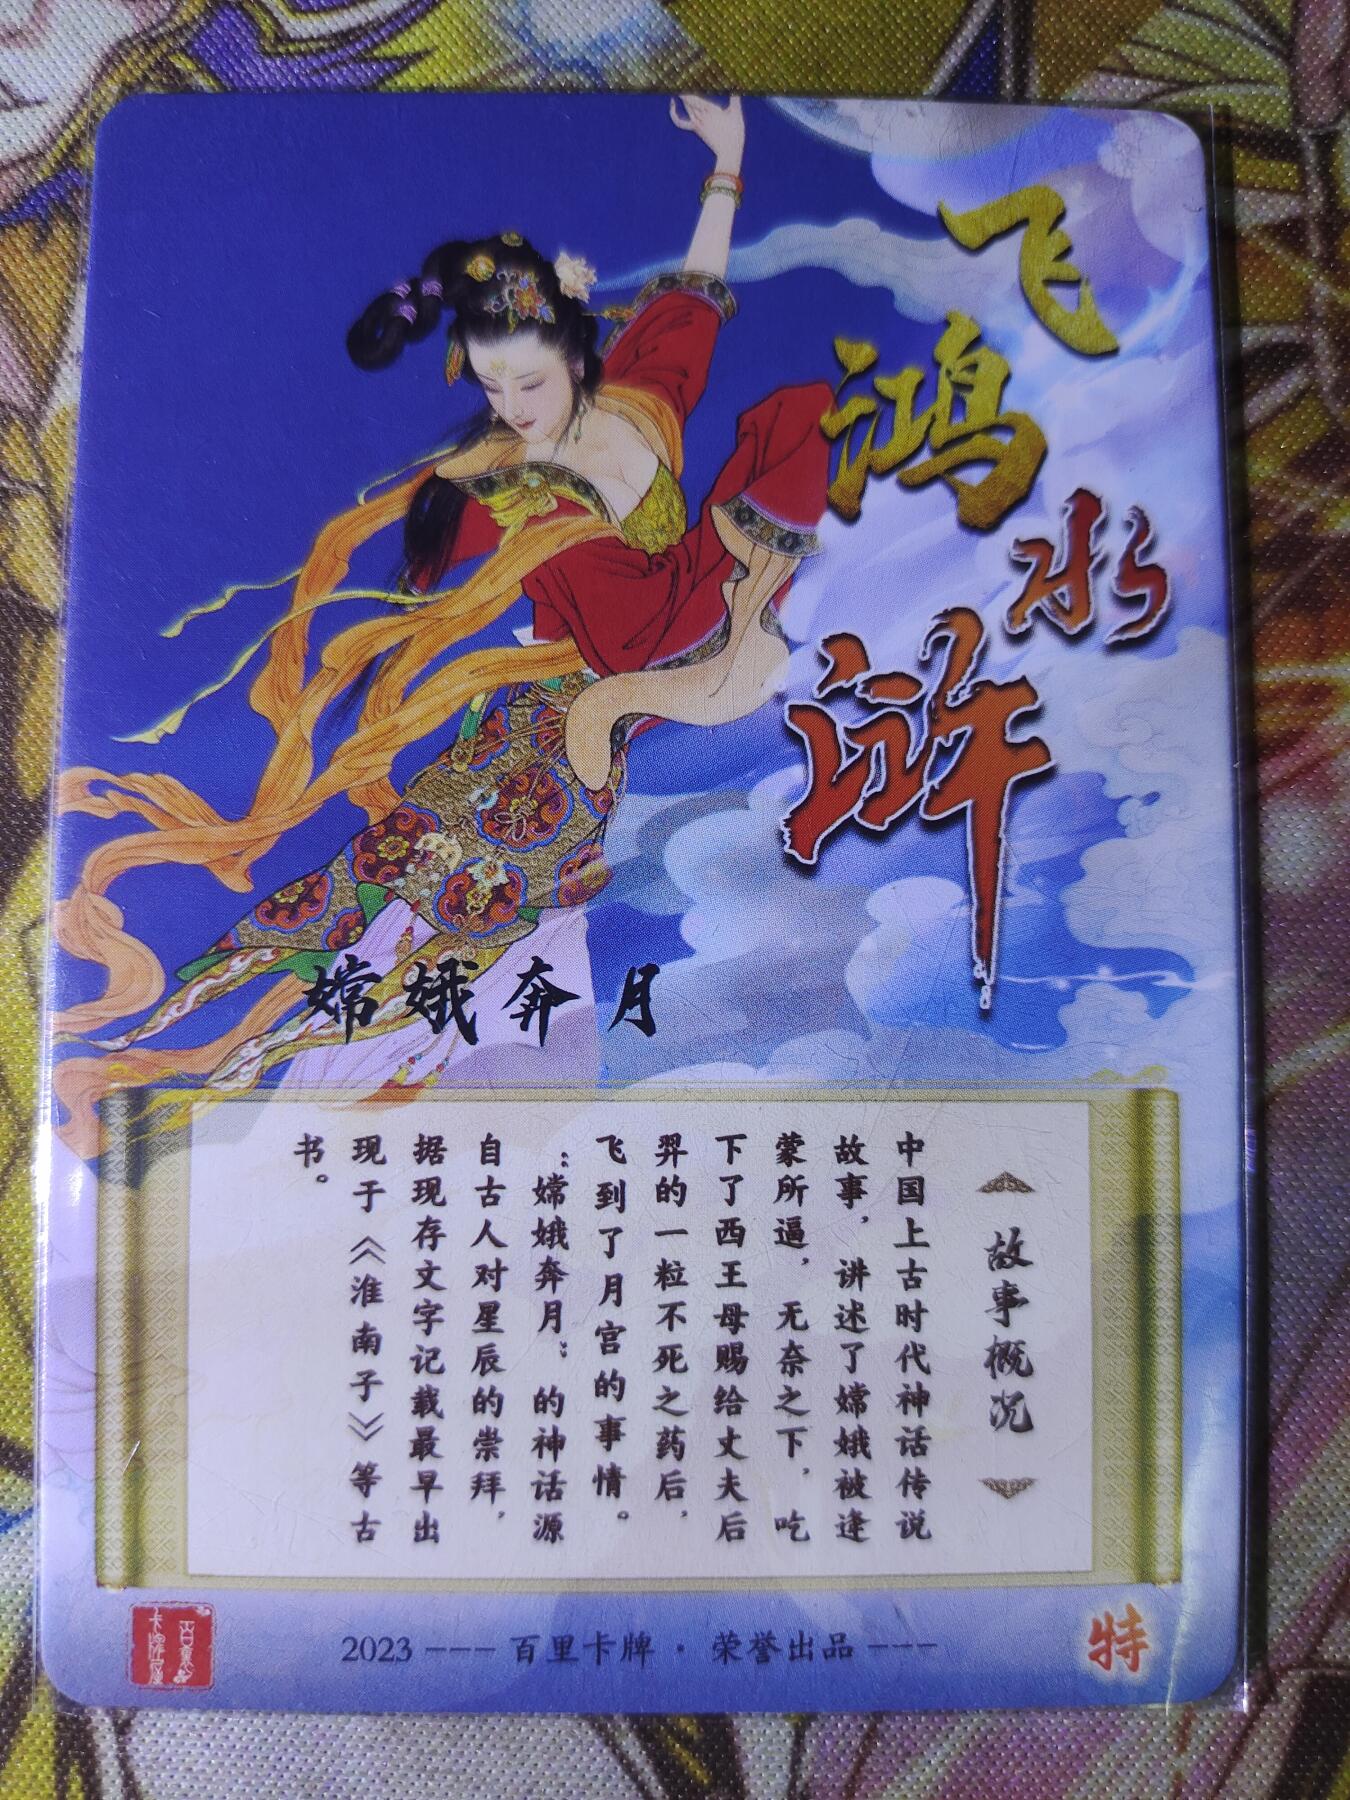 飞鸿
水浒
嫦娥奔月
故事概况
中国上古时代神话传说
故事，讲述了嫦娥被逢
蒙所逼，无奈之下，吃
下了西王母赐给丈夫后
羿的一粒不死之药后，
飞到了月宫的事情。
“嫦娥奔月”的神话源
自古人对星辰的崇拜，
据现存文字记载最早出
现于《淮南子》等古
书。
百里
卡牌屋
2023 --- 百里卡牌 · 荣誉出品 ---
特